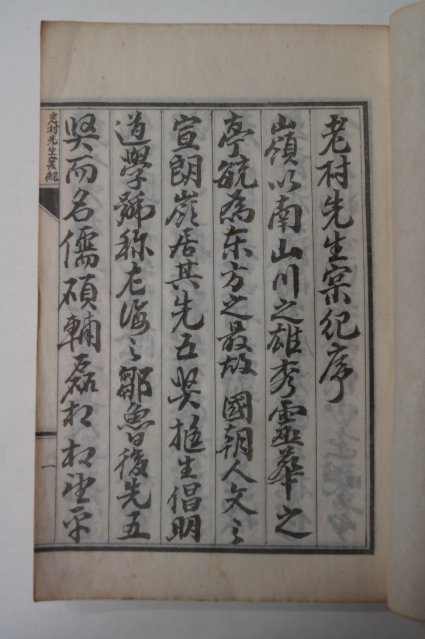 老村先生宲紀序
嶺以南山川之雄秀靈華之
亭毓為东方之最故 國朝人文之
宣朗嶺居其先五賢挺生倡明
道學號称左海之鄒魯後先五
賢而名儒碩輔磊相望平
老村先生宲紀
一